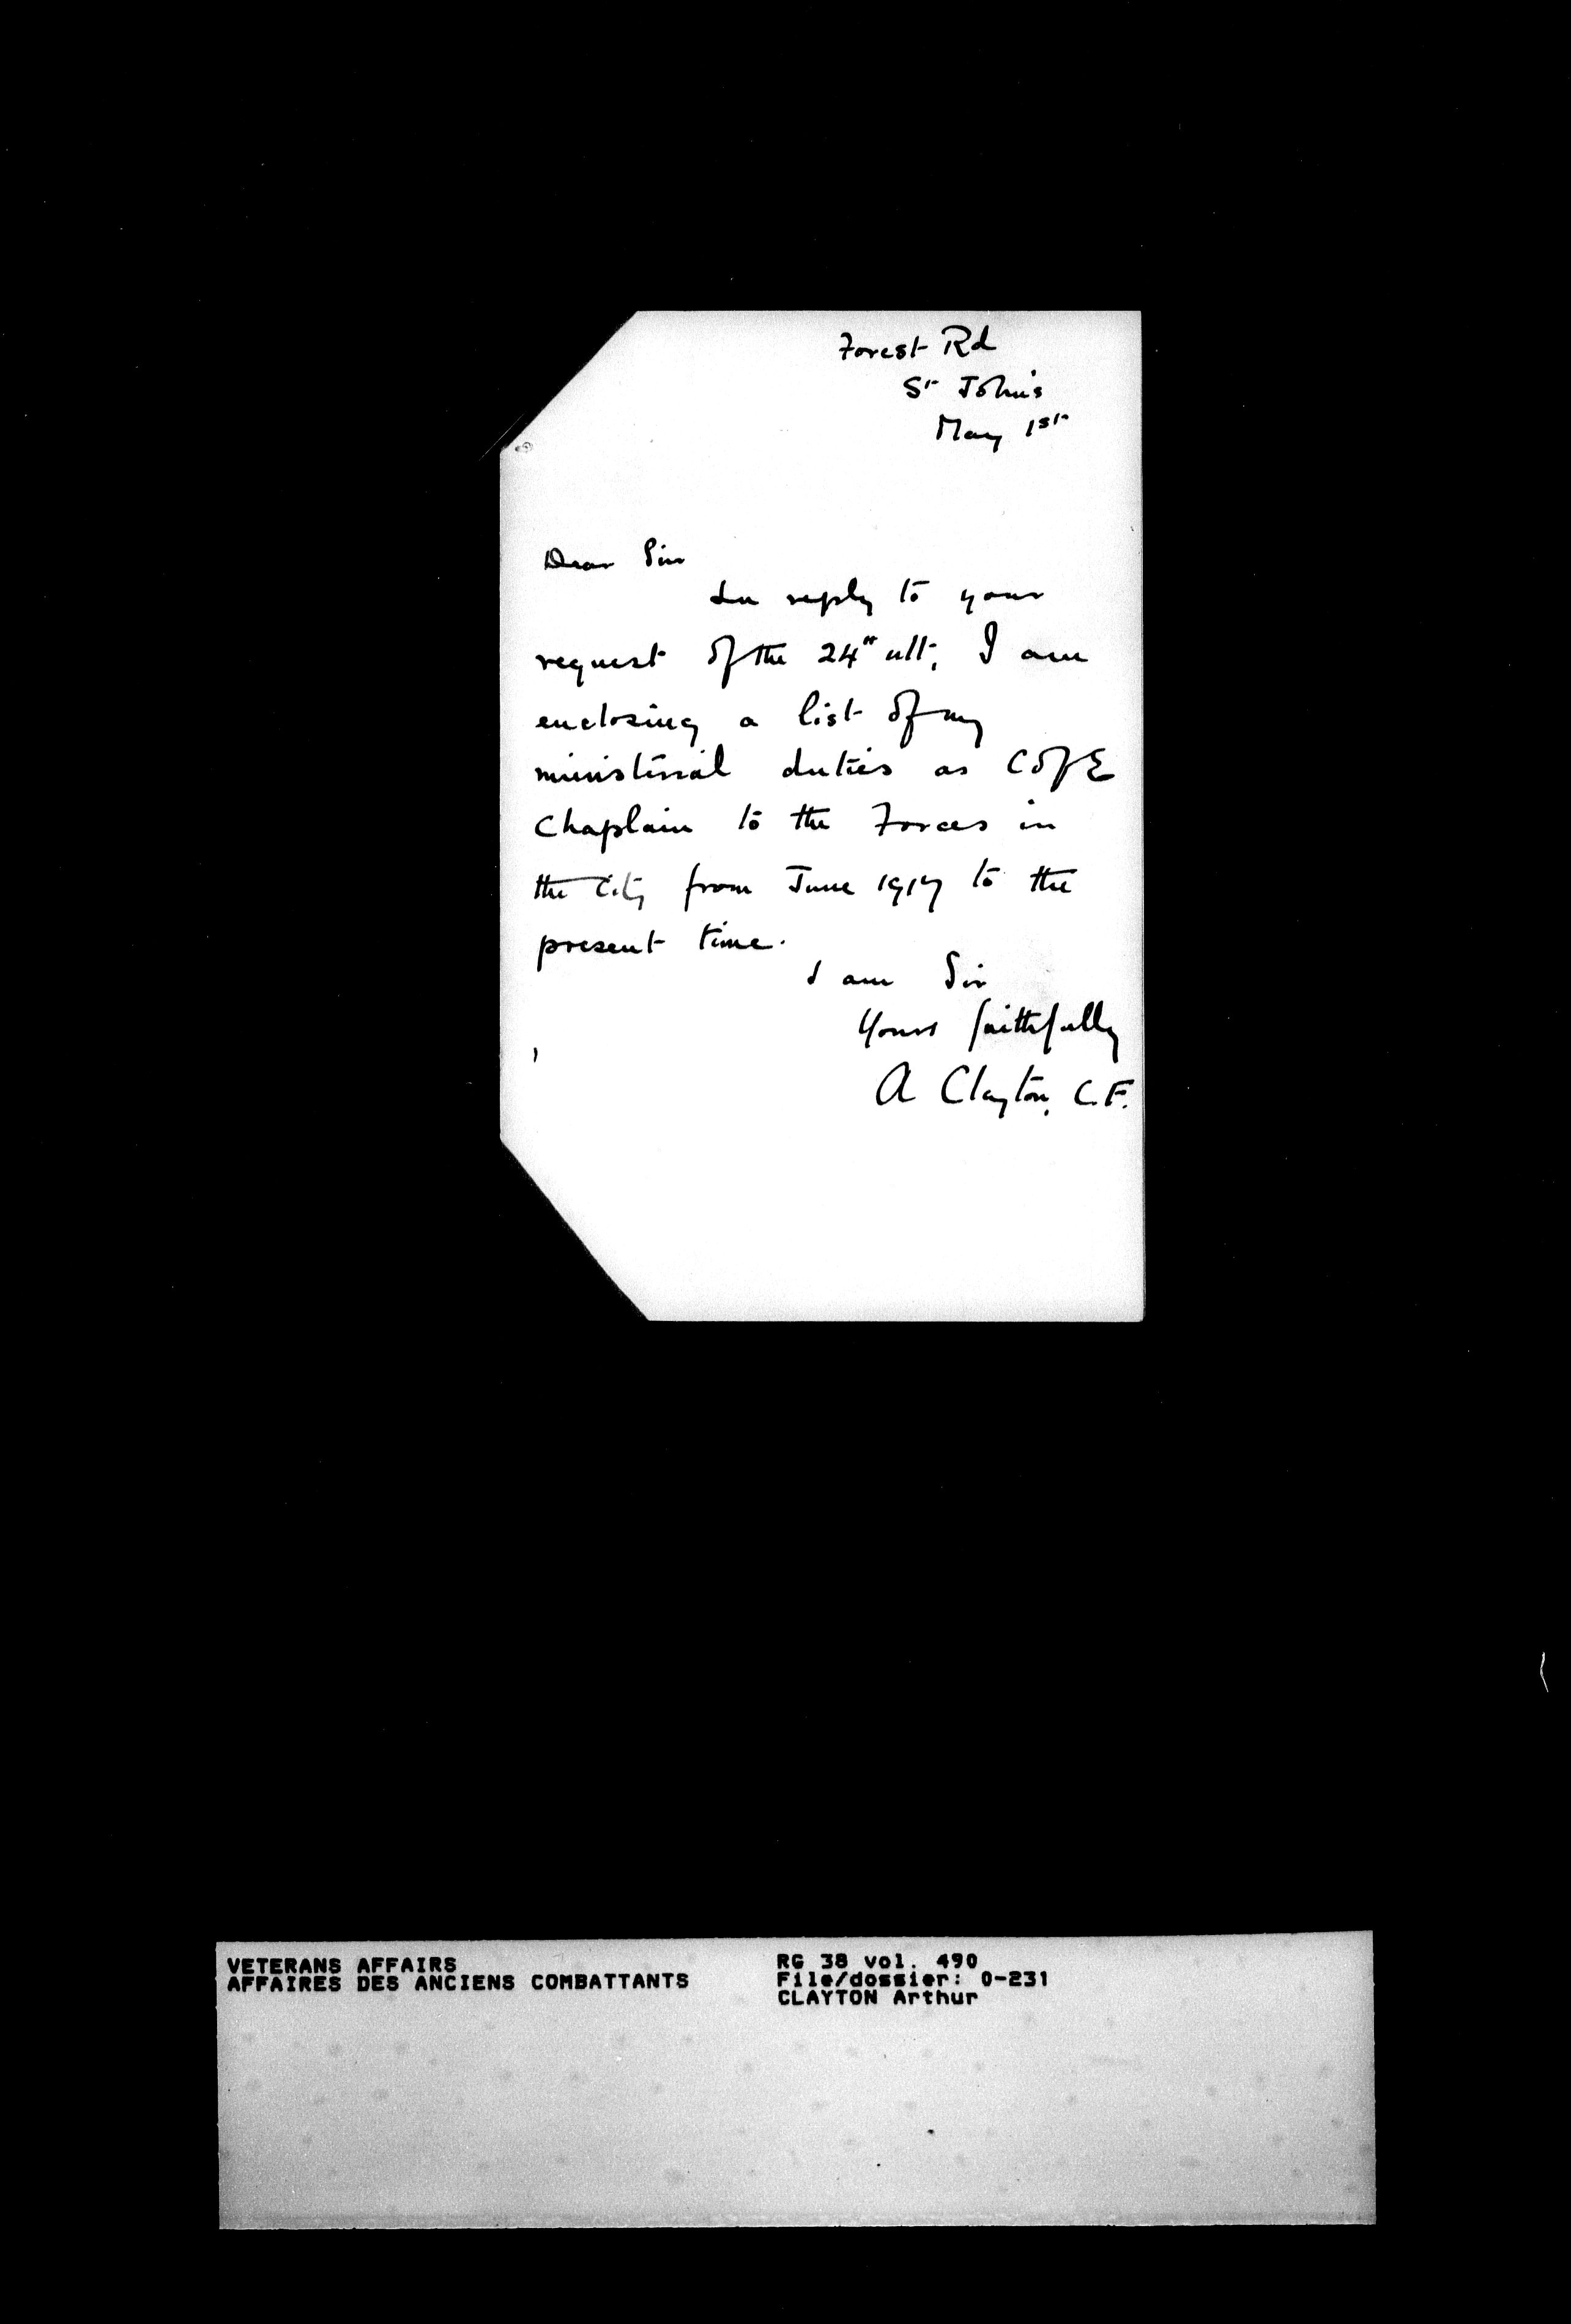 Forest Rd
St John's
May 1st
Dear Sir
In reply to your
request of the 24th ult, I am
enclosing a list of my
ministerial duties as C of E
Chaplain to the Forces in
the City from June 1917 to the
present time.
I am Sir
Yours faithfully
A Clayton, C.F.
VETERANS AFFAIRS
AFFAIRES DES ANCIENS COMBATTANTS
RG 38 vol. 490
File/dossier: 0-231
CLAYTON Arthur